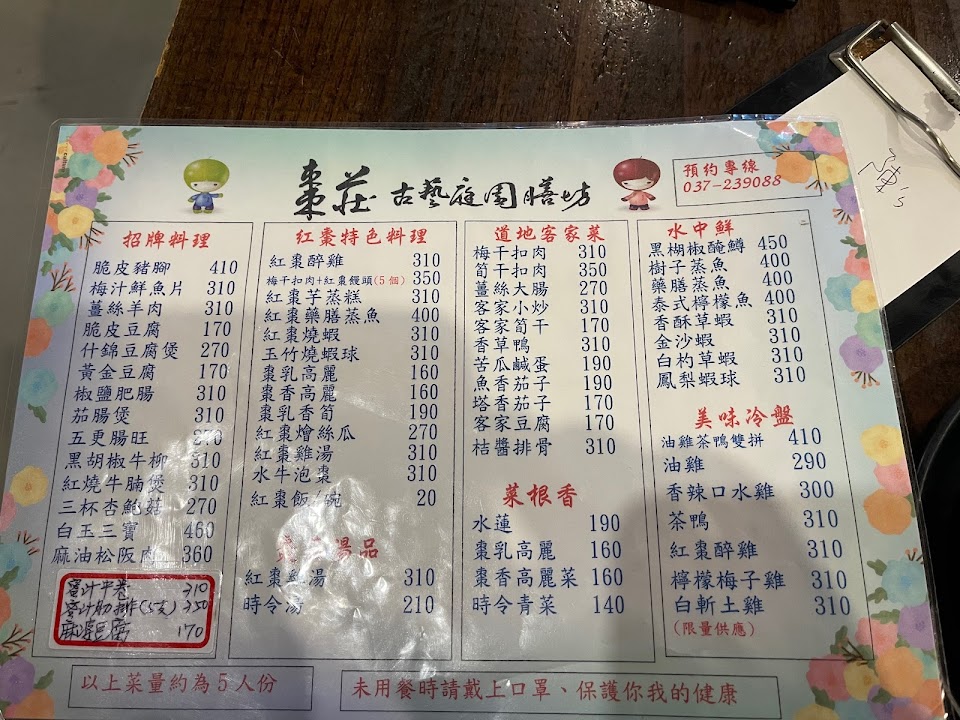 棗莊 古藝庭園膳坊
預約專線
037-239088
招牌料理
脆皮豬腳 410
梅汁鮮魚片 310
薑絲羊肉 310
脆皮豆腐 170
什錦豆腐煲 270
黃金豆腐 170
椒鹽肥腸 310
茄腸煲 310
五更腸旺
黑胡椒牛柳 310
紅燒牛腩煲 310
三杯杏鮑菇 270
白玉三寶 460
麻油松阪肉 360
蜜汁中卷 310
蜜汁肋排(5支) 350
麻婆豆腐 170
紅棗特色料理
紅棗醉雞 310
梅干扣肉+紅棗饅頭(5個) 350
紅棗芋蒸糕 310
紅棗藥膳蒸魚 400
紅棗燒蝦 310
玉竹燒蝦球 310
棗乳高麗 160
棗香高麗 160
棗乳香筍 190
紅棗燴絲瓜 270
紅棗雞湯 310
水牛泡棗 310
紅棗飯/碗 20
湯品
紅棗雞湯 310
時令湯 210
道地客家菜
梅干扣肉 310
筍干扣肉 350
薑絲大腸 270
客家小炒 310
客家筍干 170
香草鴨 310
苦瓜鹹蛋 190
魚香茄子 190
塔香茄子 170
客家豆腐 170
桔醬排骨 310
菜根香
水蓮 190
棗乳高麗 160
棗香高麗菜 160
時令青菜 140
水中鮮
黑楜椒醃鱒 450
樹子蒸魚 400
藥膳蒸魚 400
泰式檸檬魚 400
香酥草蝦 310
金沙蝦 310
白杓草蝦 310
鳳梨蝦球 310
美味冷盤
油雞茶鴨雙拼 410
油雞 290
香辣口水雞 300
茶鴨 310
紅棗醉雞 310
檸檬梅子雞 310
白斬土雞 310
(限量供應)
以上菜量約為5人份
未用餐時請戴上口罩、保護你我的健康